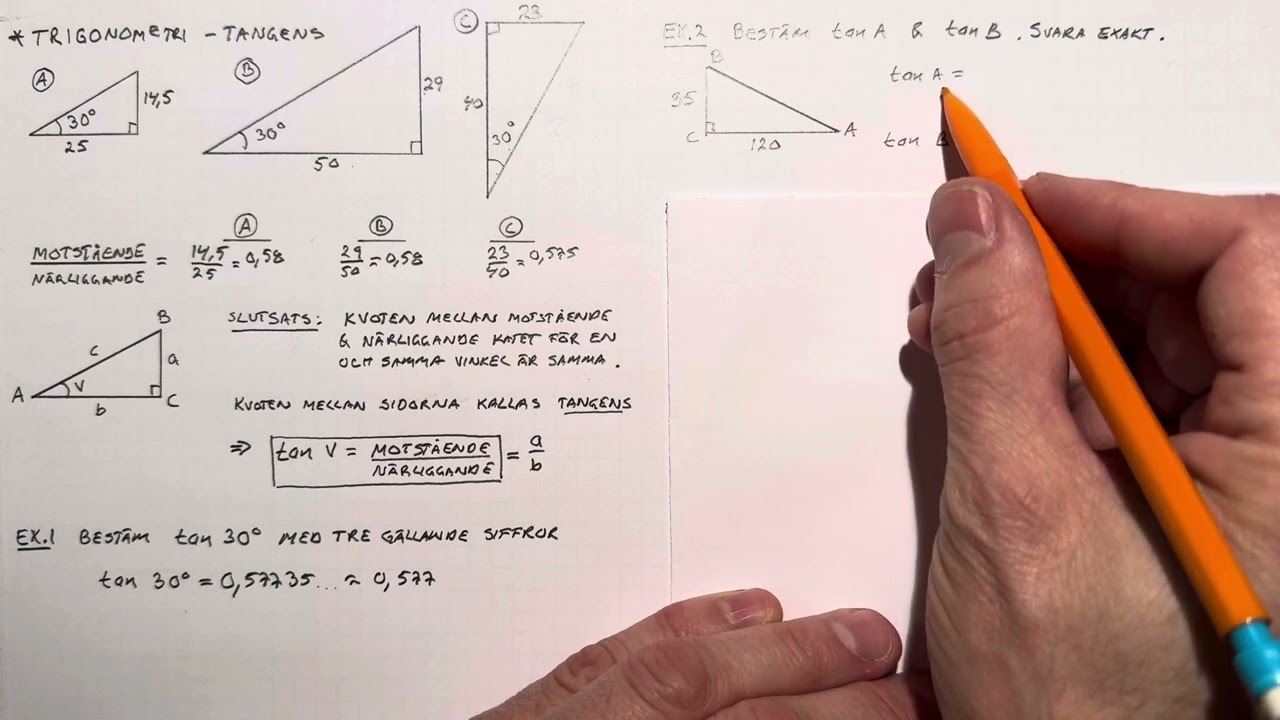 * TRIGONOMETRI - TANGENS
A
30°
14,5
25
B
30°
29
50
C
23
40
30°
A B C
MOTSTÅENDE / NÄRLIGGANDE = 14,5/25 = 0,58 29/50 = 0,58 23/40 = 0,575
A
B
C
c
a
b
v
SLUTSATS: KVOTEN MELLAN MOTSTÅENDE
& NÄRLIGGANDE KATET FÖR EN
OCH SAMMA VINKEL ÄR SAMMA.
KVOTEN MELLAN SIDORNA KALLAS TANGENS
⇒ tan v = MOTSTÅENDE / NÄRLIGGANDE = a/b
EX.1 BESTÄM tan 30° MED TRE GÄLLANDE SIFFROR
tan 30° = 0,57735... ≈ 0,577
EX.2 BESTÄM tan A & tan B. SVARA EXAKT.
B
35
C
120
A
tan A =
tan B